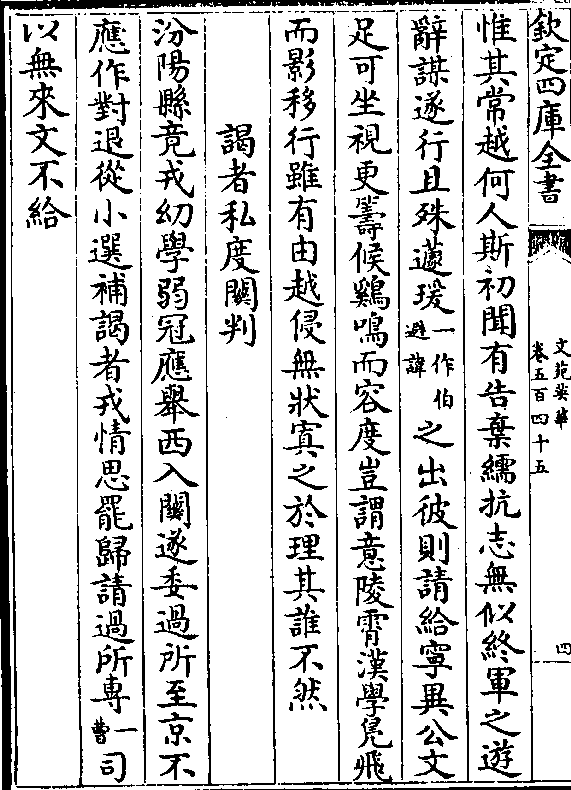 欽定四庫全書
文苑英華
卷五百四十五
四
惟其常越何人斯初聞有告棄繻抗志無似終軍之遊
辭謀遂行且殊蘧瑗一作伯避諱之出彼則請給寧異公文
足可坐視更籌候鷄鳴而容度豈謂意陵霄漢學鳬飛
而影移行雖有由越侵無狀寘之於理其誰不然
謁者私度關判
汾陽縣竟戎幼學弱冠應舉西入關遂委過所至京不
應作對退從小選補謁者戎情思罷歸請過所專一曹司
以無來文不給